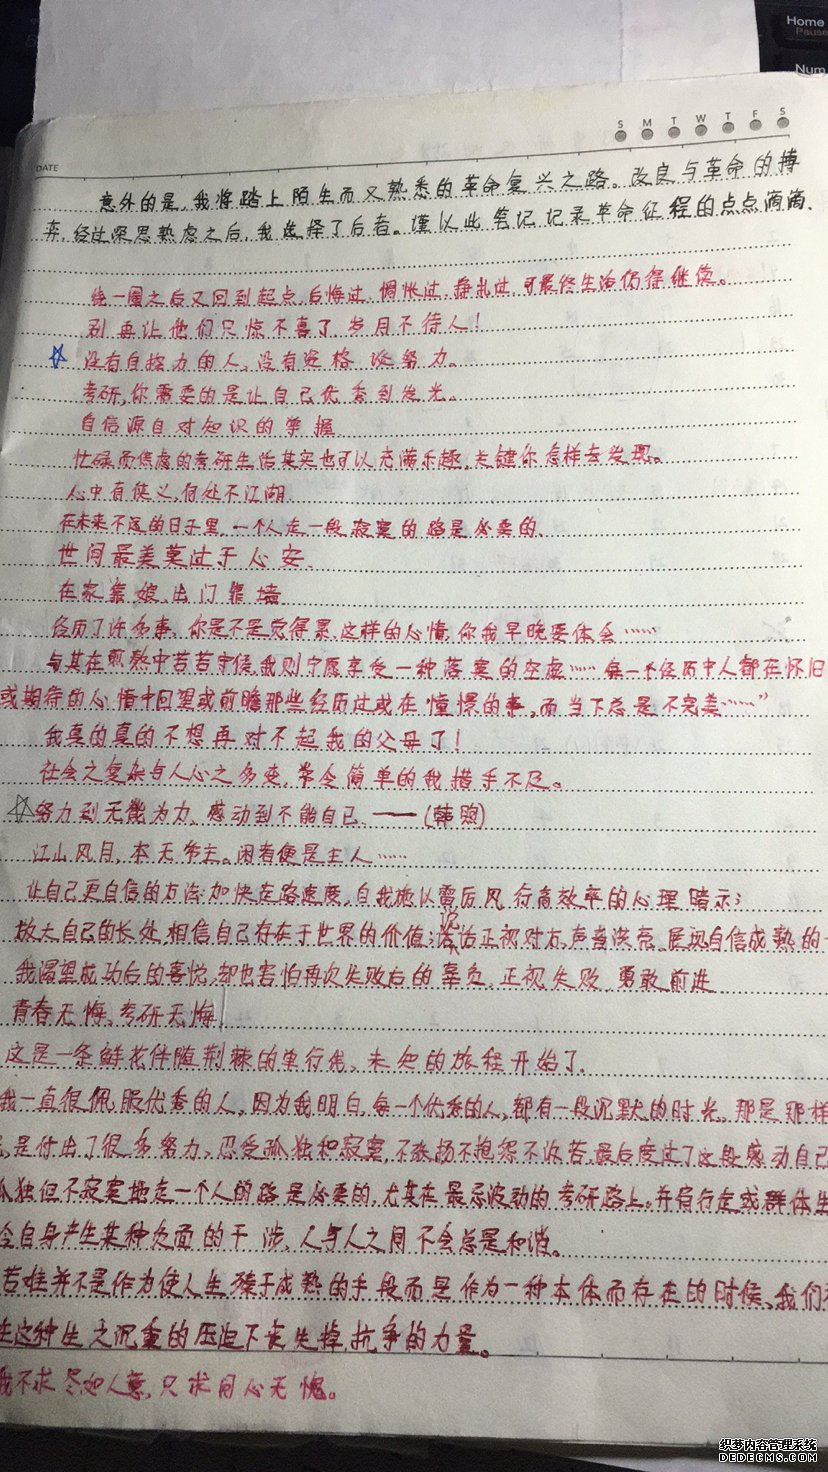 Home
Pause
Num
S M T W T F S
DATE
意外的是,我将踏上陌生而又熟悉的革命复兴之路。改良与革命的搏
弈,经过深思熟虑之后,我选择了后者。谨以此笔记记录革命征程的点点滴滴、
绕一圈之后又回到起点,后悔过、惆怅过、挣扎过,可最终生活仍得继续。
别再让他们只惊不喜了,岁月不待人!
没有自控力的人,没有资格谈努力。
考研,你需要的是让自己优秀到发光。
自信源自对知识的掌握
忙碌而焦虑的考研生活其实也可以充满乐趣,关键你怎样去发现。
心中有侠义,何处不江湖
在未来不远的日子里,一个人走一段寂寞的路是必要的、
世间最美莫过于心安、
在家靠娘、出门靠墙
经历了许多事、你是不是觉得累,这样的心情,你我早晚要体会……
与其在煎熬中苦苦守侯,我则宁愿享受一种落寞的空虚……每一个经历中人都在怀旧
或期待的心情中回望或前瞻那些经历过或在憧憬的事,而当下总是不完美……”
我真的真的不想再对不起我的父母了!
社会之复杂与人心之多变,常令简单的我措手不及。
努力到无能为力、感动到不能自已 ——(韩煦)
江山风月,本无常主。闲者便是主人……
让自己更自信的方法:加快走路速度,自我施以雷厉风行高效率的心理暗示;
放大自己的长处,相信自己存在于世界的价值;说话正视对方,声音洪亮、展现自信成熟的一
我渴望成功后的喜悦,却也害怕再次失败后的辜负、正视失败,勇敢前进
青春无悔、考研无悔
这是一条鲜花伴随荆棘的单行线、未知的旅程开始了、
我一直很佩服优秀的人,因为我明白,每一个优秀的人,都有一段沉默的时光。那是那样
是付出了很多努力、忍受孤独和寂寞,不张扬不抱怨不诉苦,最后度过了这段感动自己
孤独但不寂寞地走一个人的路是必要的,尤其在最忌波动的考研路上。并肩行走或群体生
令自身产生某种负面的干涉、人与人之间不会总是和谐。
苦难并不是作为使人生臻于成熟的手段而是作为一种本体而存在的时候、我们
在这种生之沉重的压迫下丧失掉抗争的力量。
我不求尽如人意,只求问心无愧。
织梦内容管理系统
DEDECMS.COM